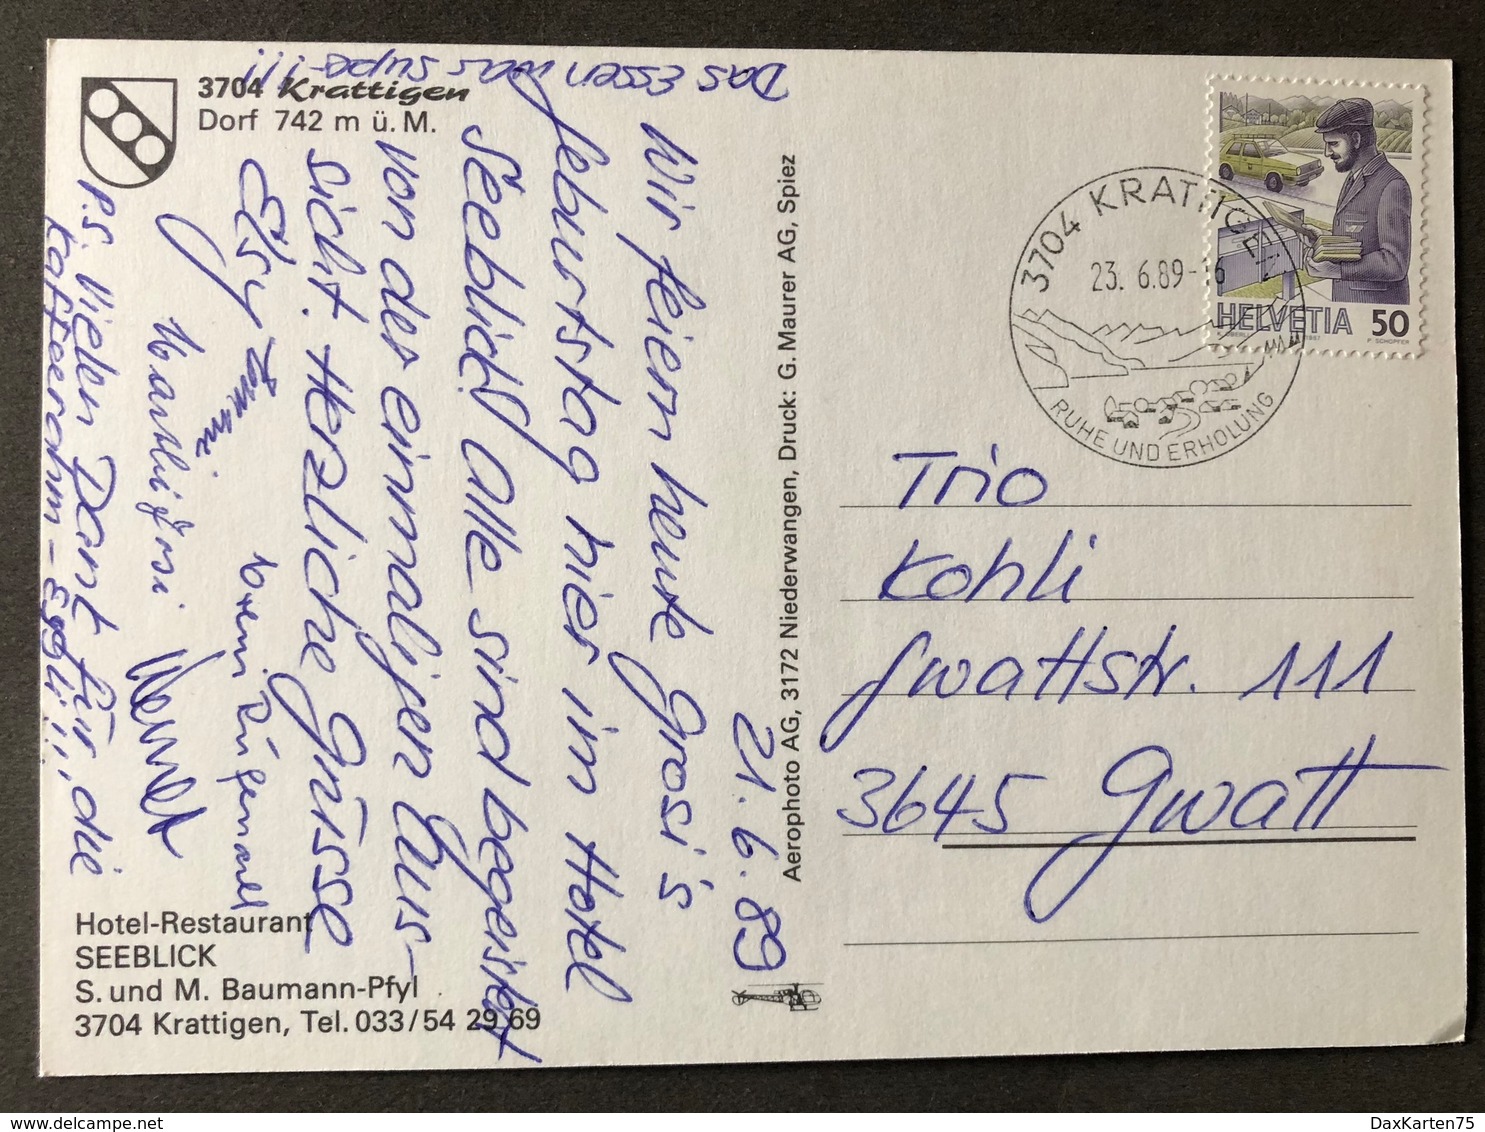 3704 Krattigen
Dorf 742 m ü. M.
Das Essen war super!!!
21. 6. 89
Wir feiern heute Grosi's
Geburtstag hier im Hotel
Seeblick! Alle sind begeistert
von der einmaligen Aus-
sicht. Herzliche Grüsse
Elsy
P.S. Vielen Dank für die
Kafferahm-
Hotel-Restaurant
SEEBLICK
S. und M. Baumann-Pfyl
3704 Krattigen, Tel. 033/54 29 69
Aerophoto AG, 3172 Niederwangen, Druck: G. Maurer AG, Spiez
3704 KRATTIGEN
23. 6.89-16
RUHE UND ERHOLUNG
HELVETIA 50
P. SCHOPFER
Trio
Kohli
Gwattstr. 111
3645 Gwatt
DaxKarten75